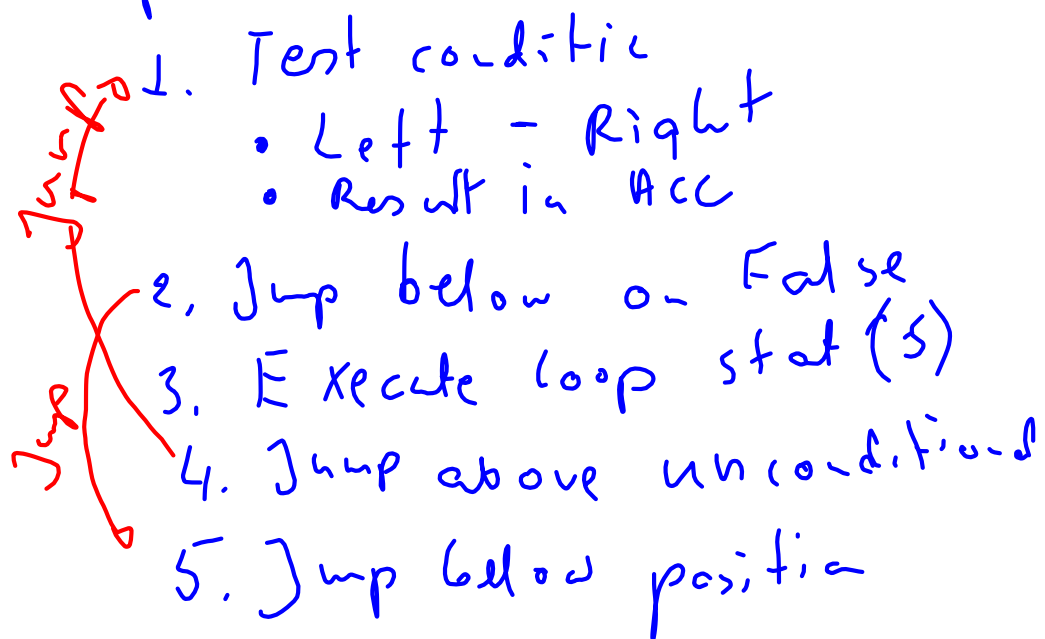 1. Test conditio
• Left - Right
• Result in ACC
2. Jump below on False
3. Execute loop stat(s)
4. Jump above unconditional
5. Jump below position
Jump